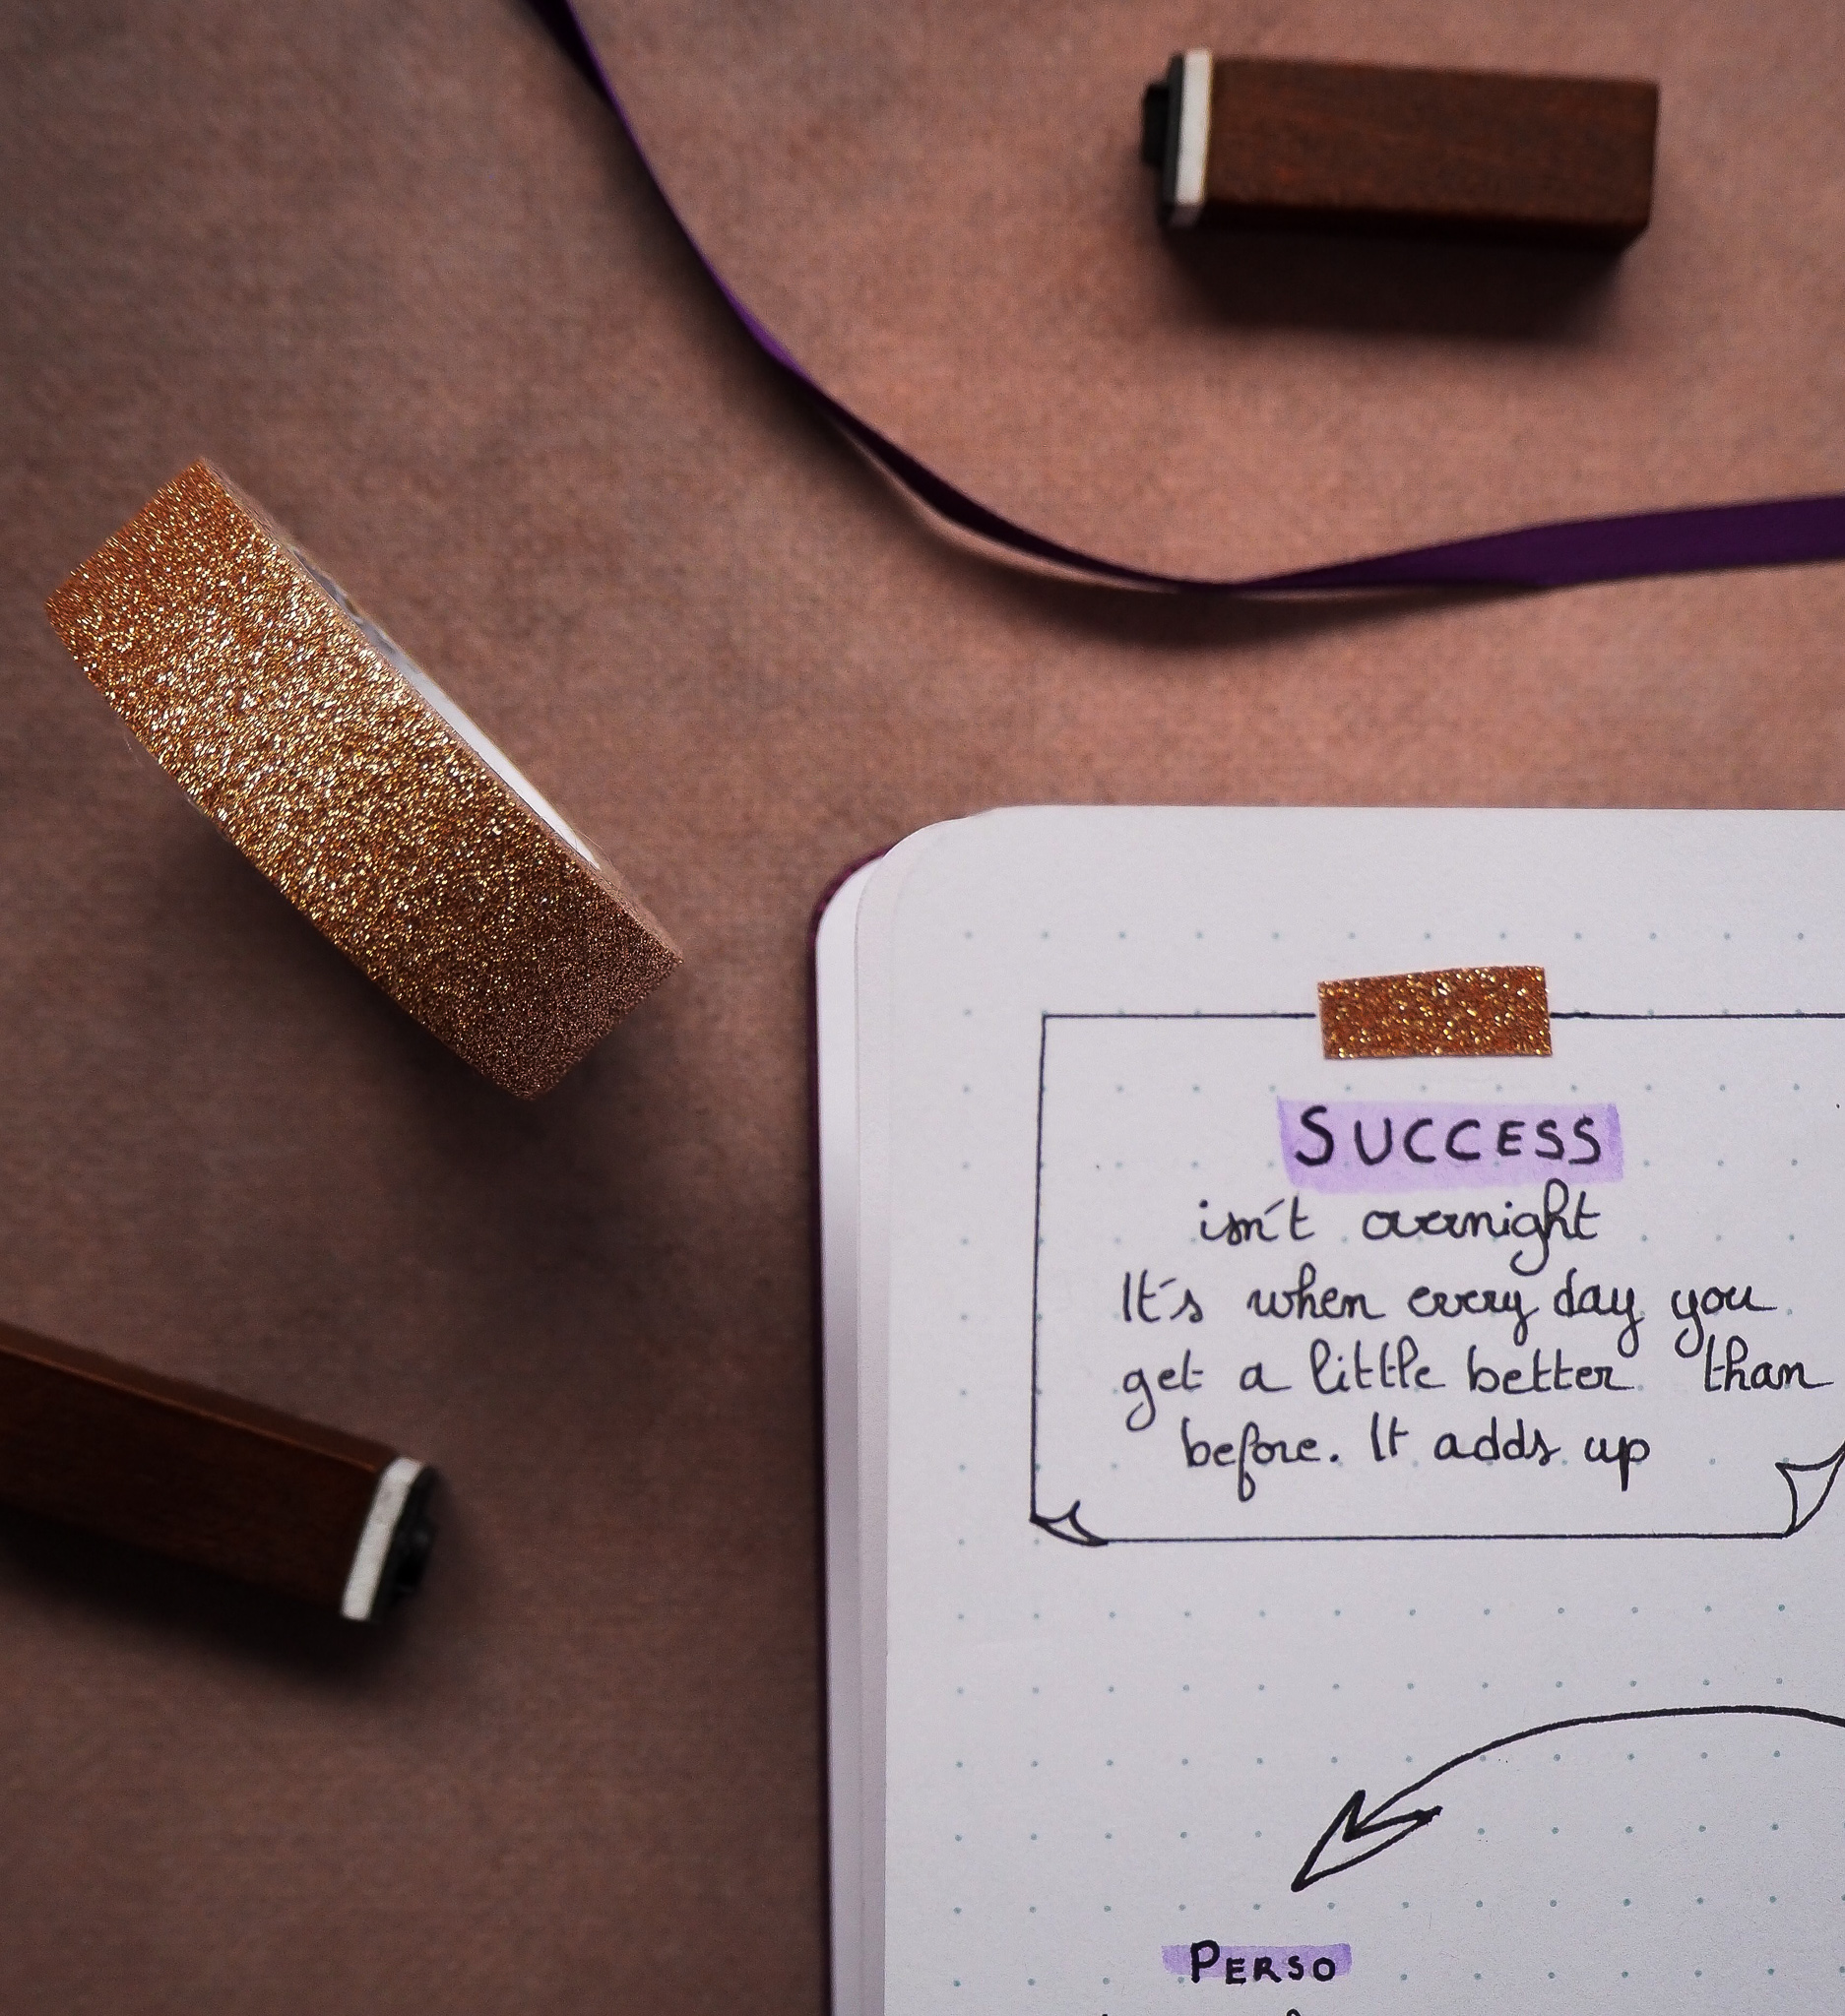 SUCCESS
isn't overnight
It's when every day you
get a little better than
before. It adds up
PERSO